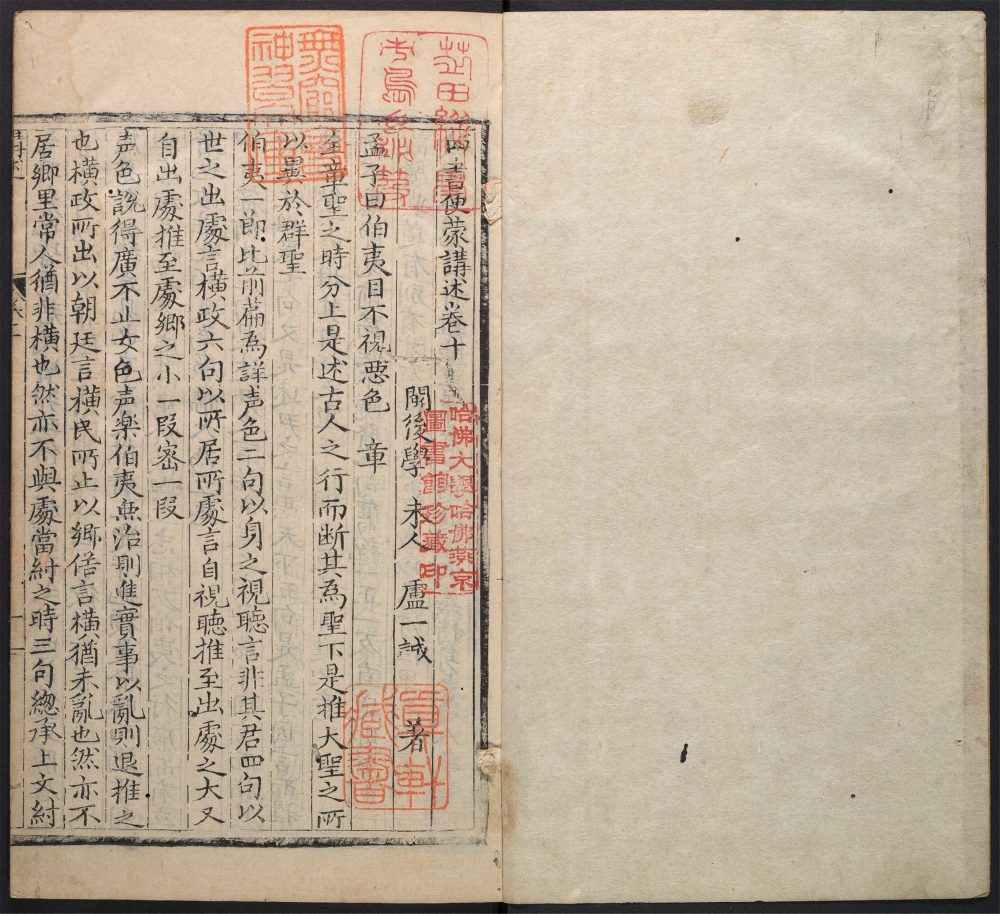 四書便蒙講述卷十
閩後學 未人 盧一誠 著
孟子曰伯夷目不視惡色 章
全章聖之時分上是述古人之行而断其為聖下是推大聖之所
以異於群聖
伯夷一節比前篇為詳声色二句以身之視聽言非其君四句以
世之出處言橫政六句以所居所處言自視聽推至出處之大又
自出處推至處鄉之小一段密一段
声色說得廣不止女色声楽伯夷無治則進實事以亂則退推之
也橫政所出以朝廷言橫民所止以鄉俗言橫猶未亂也然亦不
居鄉里常人猶非橫也然亦不與處當紂之時三句總承上文紂
哈佛大學哈佛燕京
圖書館珍藏印
藏書